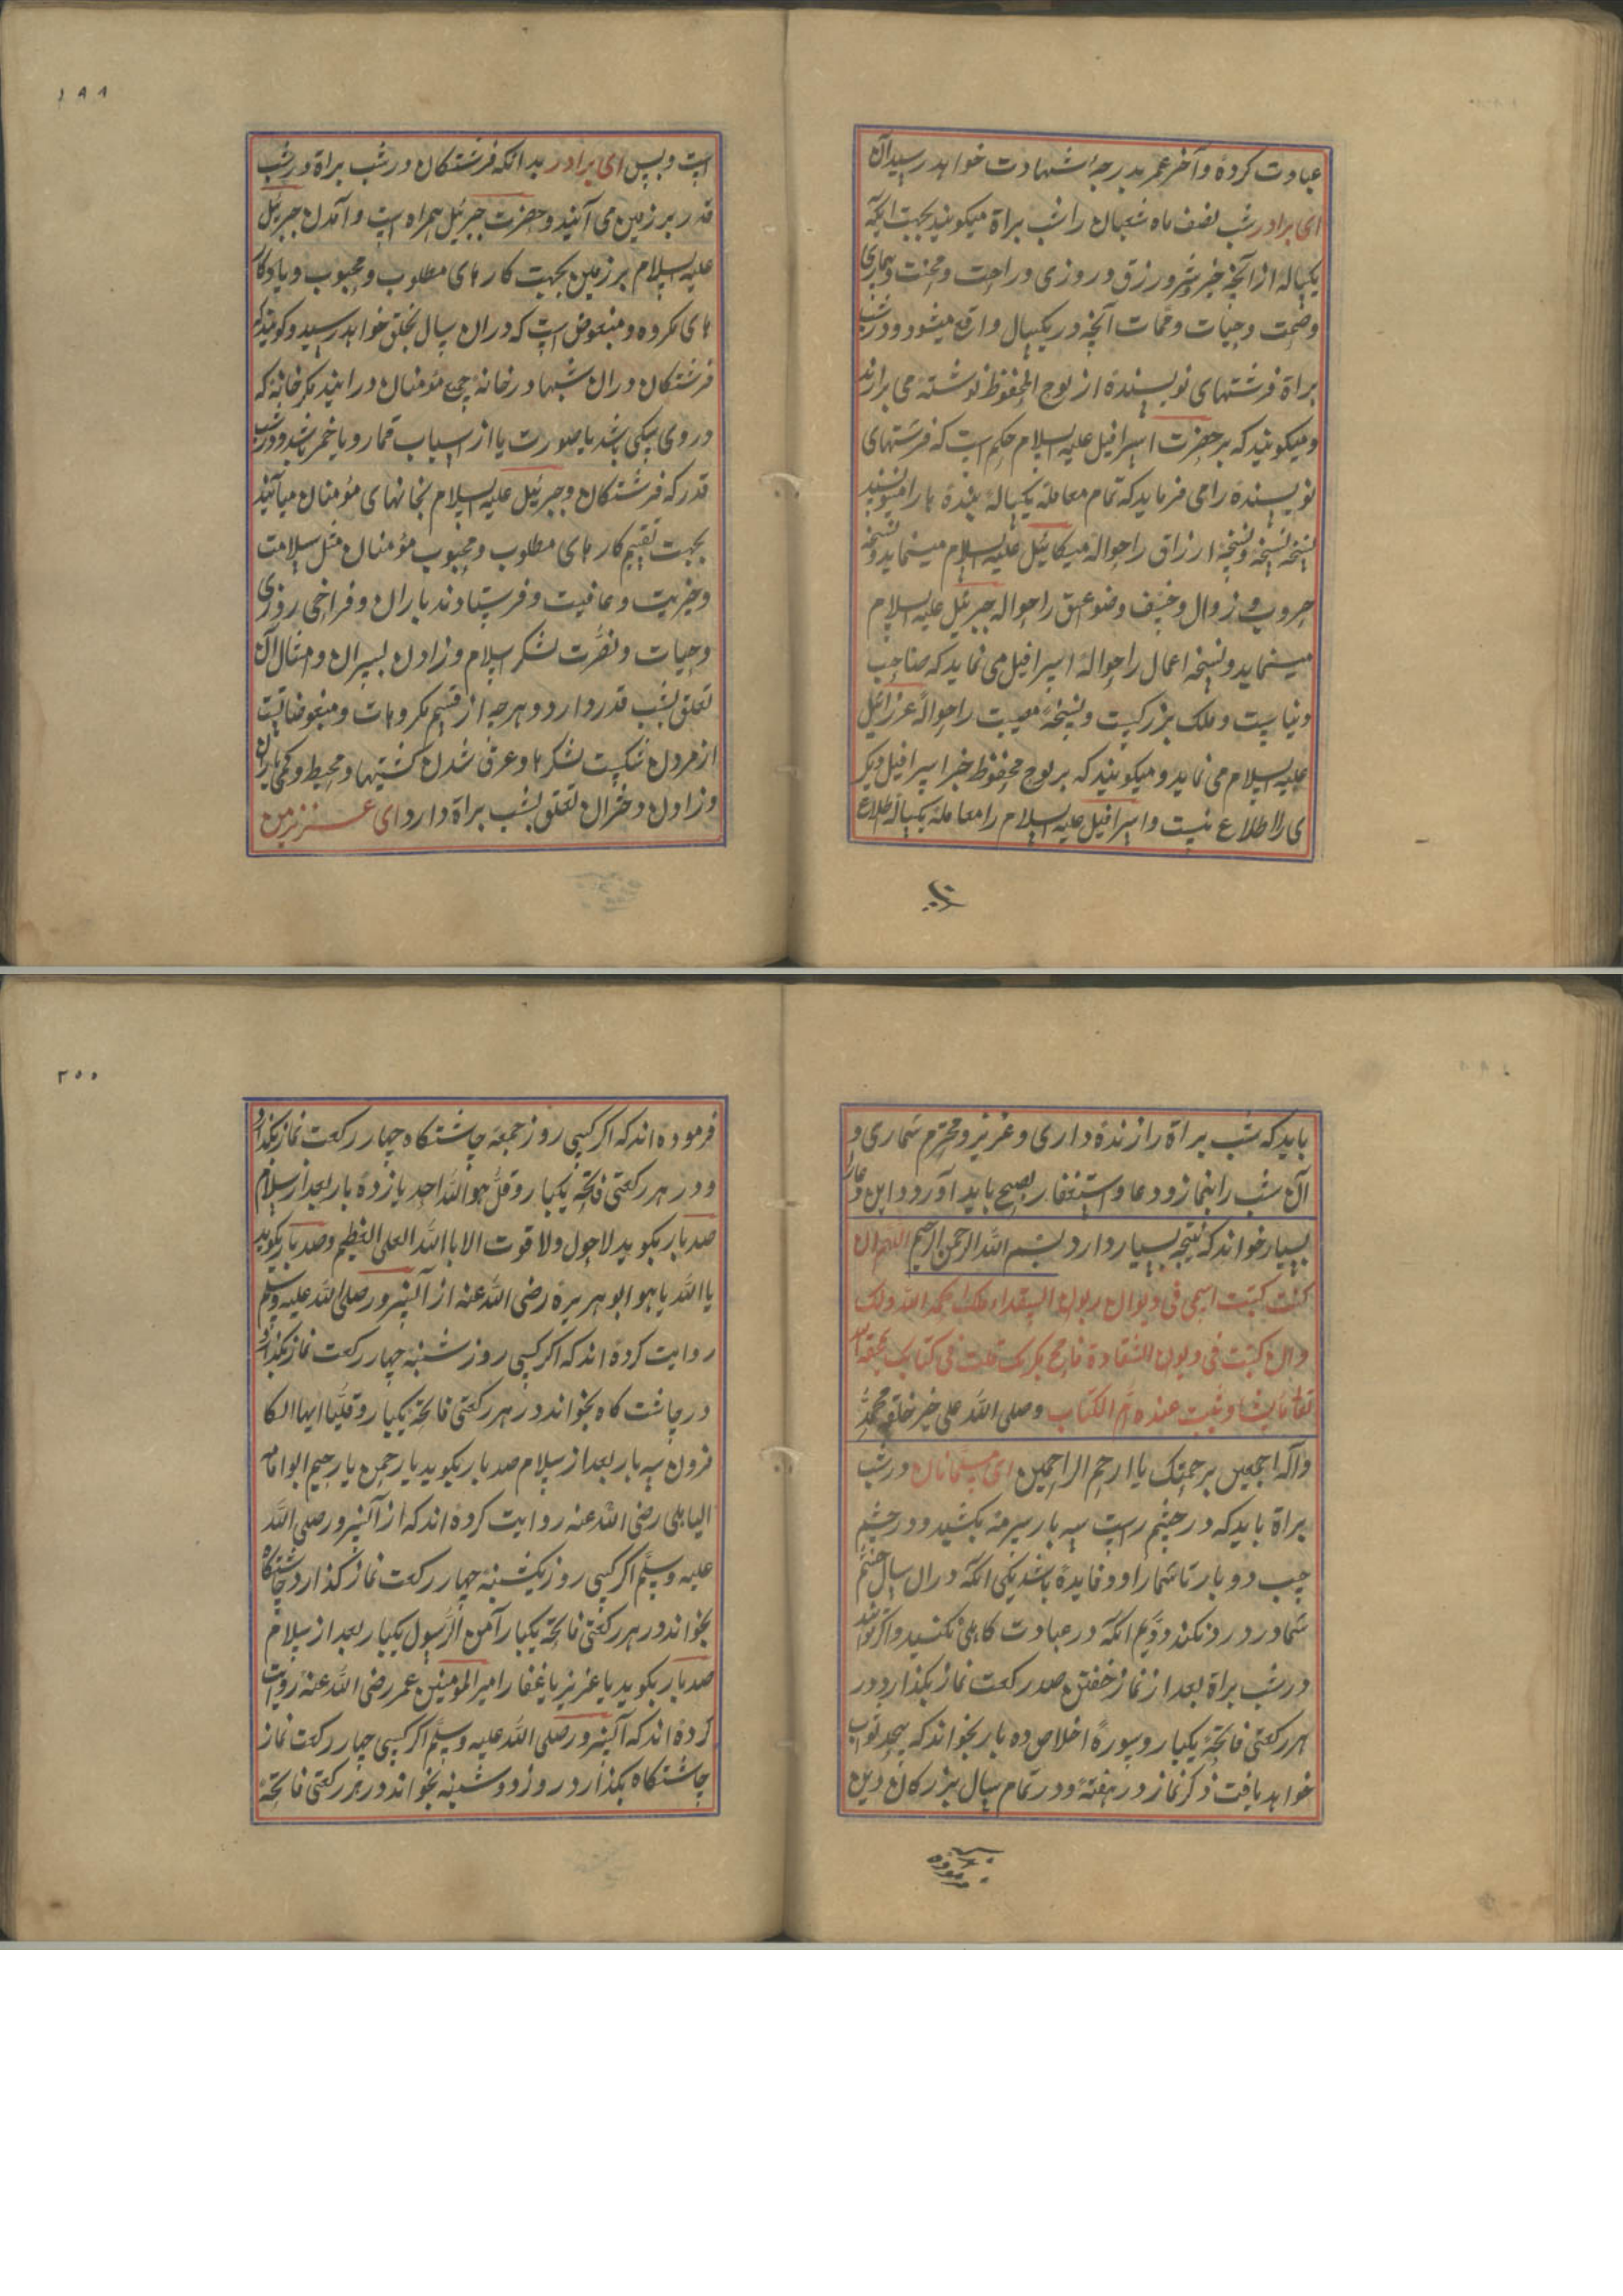 عبادت کرده و آخر عمر بدرجهٔ شهادت خواهد رسید آن
ای برادر شب نصف ماه شعبان را شب براة میکویند بجهت آنکه
یکساله از آنچه خیر و شر و رزق و روزی و راحت و محنت و بیماری
و صحت و حیات و ممات آنچه در یکسال واقع میشود و در شب
براة فرشتهای نویسنده از لوح المحفوظ نوشته می برارند
و میکویند که بر حضرت اسرافیل علیه السلام حکم است که فرشتهای
نویسنده را می فرماید که تمام معامله یکساله بنده ها را منویسند
نسخه نسخه و نسخهٔ ارزاق را حوالهٔ میکائیل علیه السلام مینماید و نسخهٔ
حروب و زوال و خسف و صواعق را حواله جبرئیل علیه السلام
مینماید و نسخه اعمال را حوالهٔ اسرافیل می نماید که صاحب
دنیا است و ملک بزرکیست و نسخهٔ مصیبت را حوالهٔ عزرائیل
علیه السلام می نماید و میکویند که بر لوح محفوظ جز اسرافیل دیکر
ی را اطلاع نیست و اسرافیل علیه السلام را معامله یکساله اطلاع
۱۹۹
است و بس ای برادر بدانکه فرشتکان در شب براة و در شب
قدر بر زمین می آیند و حضرت جبرئیل همراه است و آمدن جبرئیل
علیه السلام بر زمین بجهت کار های مطلوب و محبوب و یا و کار
های مکروه و مبغوض است که در ان سال بخلق خواهد رسید و کویند که
فرشتکان در ان شبها در خانه جمیع مؤمنان در ایند مکر خانهٔ که
در وی سکی باشد یا صورت یا از اسباب قمار و یا خمر باشد و در شب
قدر که فرشتکان و جبرئیل علیه السلام بخانهای مؤمنان میآیند
بجهت تقسیم کار های مطلوب و محبوب مؤمنان مثل سلامت
و خیریت و عافیت و فرستادند باران و فراخی روزی
و حیات و نصرت لشکر اسلام و زادن پسران و امثال آن
تعلق بشب قدر دارد و هر چه از قسم مکروهات و مبغوضاتست
از مردن شکست لشکرها و غرق شدن کشتیها و محیط و کمی باران
و زادن دختران تعلق بشب براة دارد ای عزیز من
باید که شب براة را زنده داری و عزیز و محترم شماری و
آن شب را بنماز و دعا و استغفار بصبح باید آورد و این دعا را
بسیار خواند که نتیجه بسیار دارد بسم الله الرحمن الرحیم اللهم ان
کنت کتبت اسمی فی دیوان
وان کتبت فی
وثبت عنده ام الکتاب وصلی الله علی خیر خلقه محمد
و آله اجمعین برحمتک یا ارحم الراحمین ای مسلمانان در شب
براة باید که در چشم راست سه بار سرمه بکشید و در چشم
چپ دو بار تا شما را دو فایده باشد یکی آنکه در ان سال چشم
شما درد نکند دویم آنکه در عبادت کاهلی نکنید و اکر توانید
در شب براة بعد از نماز خفتن صد رکعت نماز بکذارد در
هر رکعتی فاتحهٔ یکبار و سورهٔ اخلاص ده بار بخواند که بیحد ثواب
خواهد یافت ذکر نماز در هفتهٔ و در تمام سال بزرکان دین
فرموده
۲۰۰
فرموده اند که اکر کسی روز جمعه چاشتکاه چهار رکعت نماز بکذارد
و در هر رکعتی فاتحهٔ یکبار و قل هو الله احد یازده بار بعد از سلام
صد بار بکوید لا حول ولا قوت الا باالله العلی العظیم و صد بار بکوید
یا الله یا هو ابو هریره رضی الله عنه از آنسرور صلی الله علیه وسلم
روایت کرده اند که اکر کسی روز شنبه چهار رکعت نماز بکذارد
در چاشت کاه بخواند در هر رکعتی فاتحهٔ یکبار و قل یا ایها الکا
فرون سه بار بعد از سلام صد بار بکوید یا رحمن یا رحیم ابو امامه
الباهلی رضی الله عنه روایت کرده اند که از آنسرور صلی الله
علیه وسلم اکر کسی روز یکشنبه چهار رکعت نماز کذارد چاشتکاه
بخواند در هر رکعتی فاتحهٔ یکبار آمن الرسول یکبار بعد از سلام
صد بار بکوید یا عزیز یا غفار امیر المومنین عمر رضی الله عنه روایت
کرده اند که آنسرور صلی الله علیه وسلم اکر کسی چهار رکعت نماز
چاشتکاه بکذارد روز دوشنبه بخواند در هر رکعتی فاتحهٔ